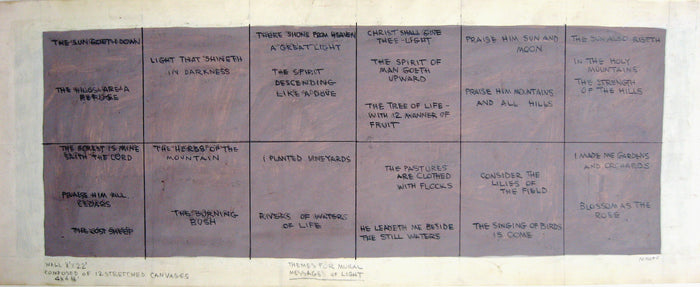 THE SUN GOETH DOWN
THE HILLS ARE A
REFUGE
LIGHT THAT SHINETH
IN DARKNESS
THERE SHONE FROM HEAVEN
A GREAT LIGHT
THE SPIRIT
DESCENDING
LIKE A DOVE
CHRIST SHALL GIVE
THEE LIGHT
THE SPIRIT OF
MAN GOETH
UPWARD
THE TREE OF LIFE -
WITH 12 MANNER OF
FRUIT
PRAISE HIM SUN AND
MOON
PRAISE HIM MOUNTAINS
AND ALL HILLS
THE SUN ALSO RISETH
IN THE HOLY
MOUNTAINS
THE STRENGTH
OF THE HILLS
THE FOREST IS MINE
SAITH THE LORD
PRAISE HIM ALL
CEDARS
THE LOST SHEEP
THE HERBS OF THE
MOUNTAIN
THE BURNING
BUSH
I PLANTED VINEYARDS
RIVERS OF WATERS
OF LIFE
THE PASTURES
ARE CLOTHED
WITH FLOCKS
HE LEADETH ME BESIDE
THE STILL WATERS
CONSIDER THE
LILIES OF
THE FIELD
THE SINGING OF BIRDS
IS COME
I MADE ME GARDENS
AND ORCHARDS
BLOSSOM AS THE
ROSE
WALL 8'X22'
COMPOSED OF 12 STRETCHED CANVASES
THEMES FOR MURAL
MESSAGES OF LIGHT